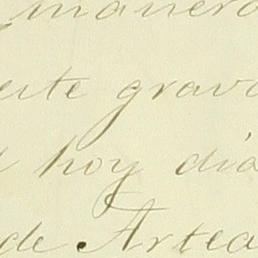 manera
este grava
hoy dia
de Artea